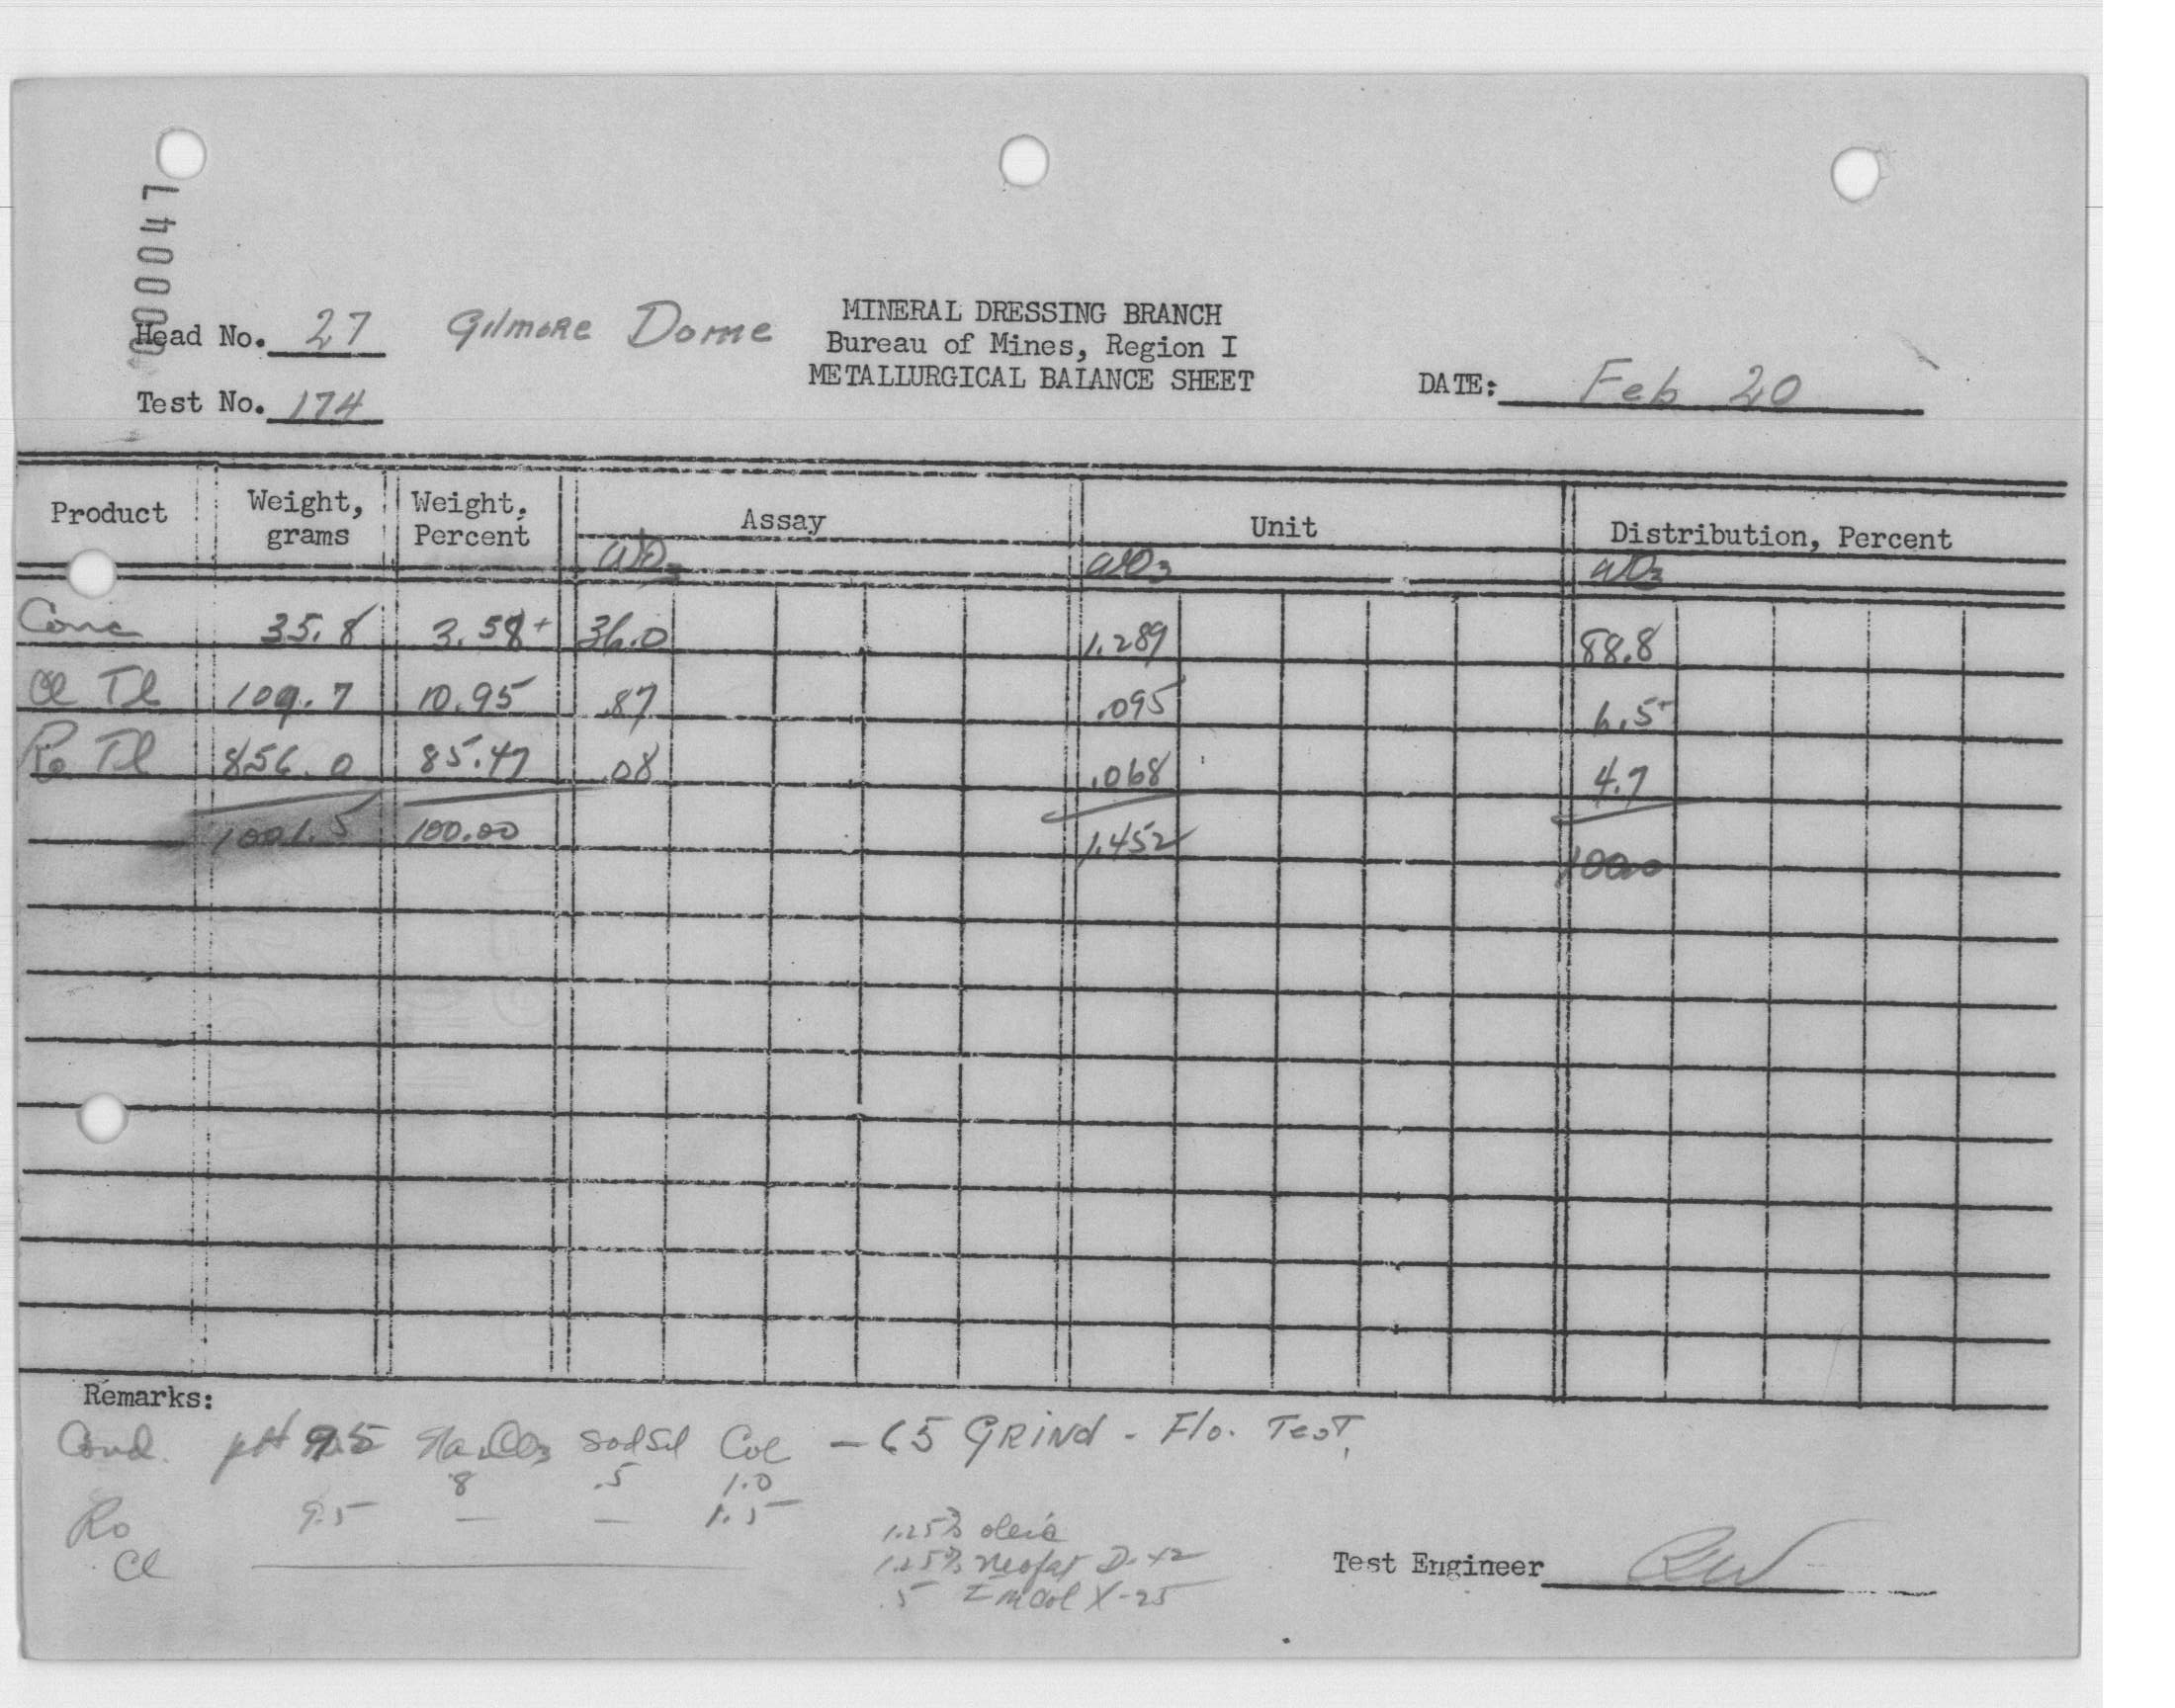 L40000
MINERAL DRESSING BRANCH
Head No. 27 Gilmore Dome Bureau of Mines, Region I
METALLURGICAL BALANCE SHEET DATE: Feb 20
Test No. 174
Product Weight, grams Weight, Percent Assay Unit Distribution, Percent
WO3 WO3 WO3
Conc 35.8 3.58+ 36.0 1.289 88.8
Cl Tl 109.7 10.95 .87 .095 6.5
Ro Tl 856.0 85.47 .08 .068 4.7
1001.5 100.00 1.452 100.0
Remarks:
Cond. pH 9.5 Na2CO3 Sod Sil Col - 65 GRIND - Flo. Test
8 .5 1.0
Ro 9.5 — — 1.5
Cl
1.25% oleic
1.25% Neofat D-42
.5 Emcol X-25
Test Engineer RW